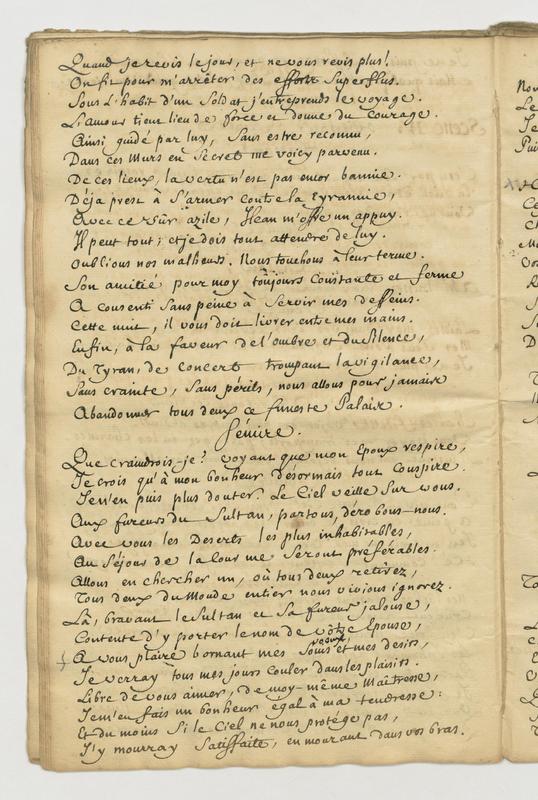 Quand je revis le jour, et ne vous revis plus!
On fit pour m'arrêter des efforts superflus.
Sous l'habit d'un Soldat j'entreprends le voyage.
L'amour tient lieu de force et donne du courage.
Ainsi guidé par luy, sans estre reconnu,
Dans ces Murs en secret me voicy parvenu.
De ces lieux, la vertu n'est pas encor bannie.
Déja prest à s'armer contre la tyrannie,
Avec ce sûr azile, m'offre un appuy.
Il peut tout; et je dois tout attendre de luy.
Oublions nos malheurs. Nous touchons à leur terme.
Son amitié pour moy toûjours constante et ferme
A consenti sans peine à servir mes desseins.
Cette nuit, il vous doit livrer entre mes mains.
Enfin, à la faveur de l'ombre et du silence,
Du Tyran, de concert trompant la vigilance,
Sans crainte, sans périls, nous allons pour jamais
Abandonner tous deux ce funeste Palais.
Sémire.
Que craindrois-je? voyant que mon Epoux respire,
Je crois qu'à mon bonheur désormais tout conspire.
Je n'en puis plus douter. Le Ciel veille sur vous.
Aux fureurs du Sultan, partons, dérobons-nous.
Avec vous les Deserts les plus inhabitables,
Au Séjour de la Cour me seront préférables.
Allons en chercher un, où tous deux retirez,
Tous deux du Monde entier nous vivions ignorez.
Là, bravant le Sultan et sa fureur jalouse,
Contente d'y porter le nom de vôtre Epouse,
A vous plaire bornant mes voeux et mes desirs,
Je verray tous mes jours couler dans les plaisirs.
Libre de vous aimer, de moy-même Maîtresse,
Je m'en fais un bonheur égal à ma tendresse:
Et du moins si le Ciel ne nous protége pas,
J'y mourray satisfaite, en mourant dans vos bras.